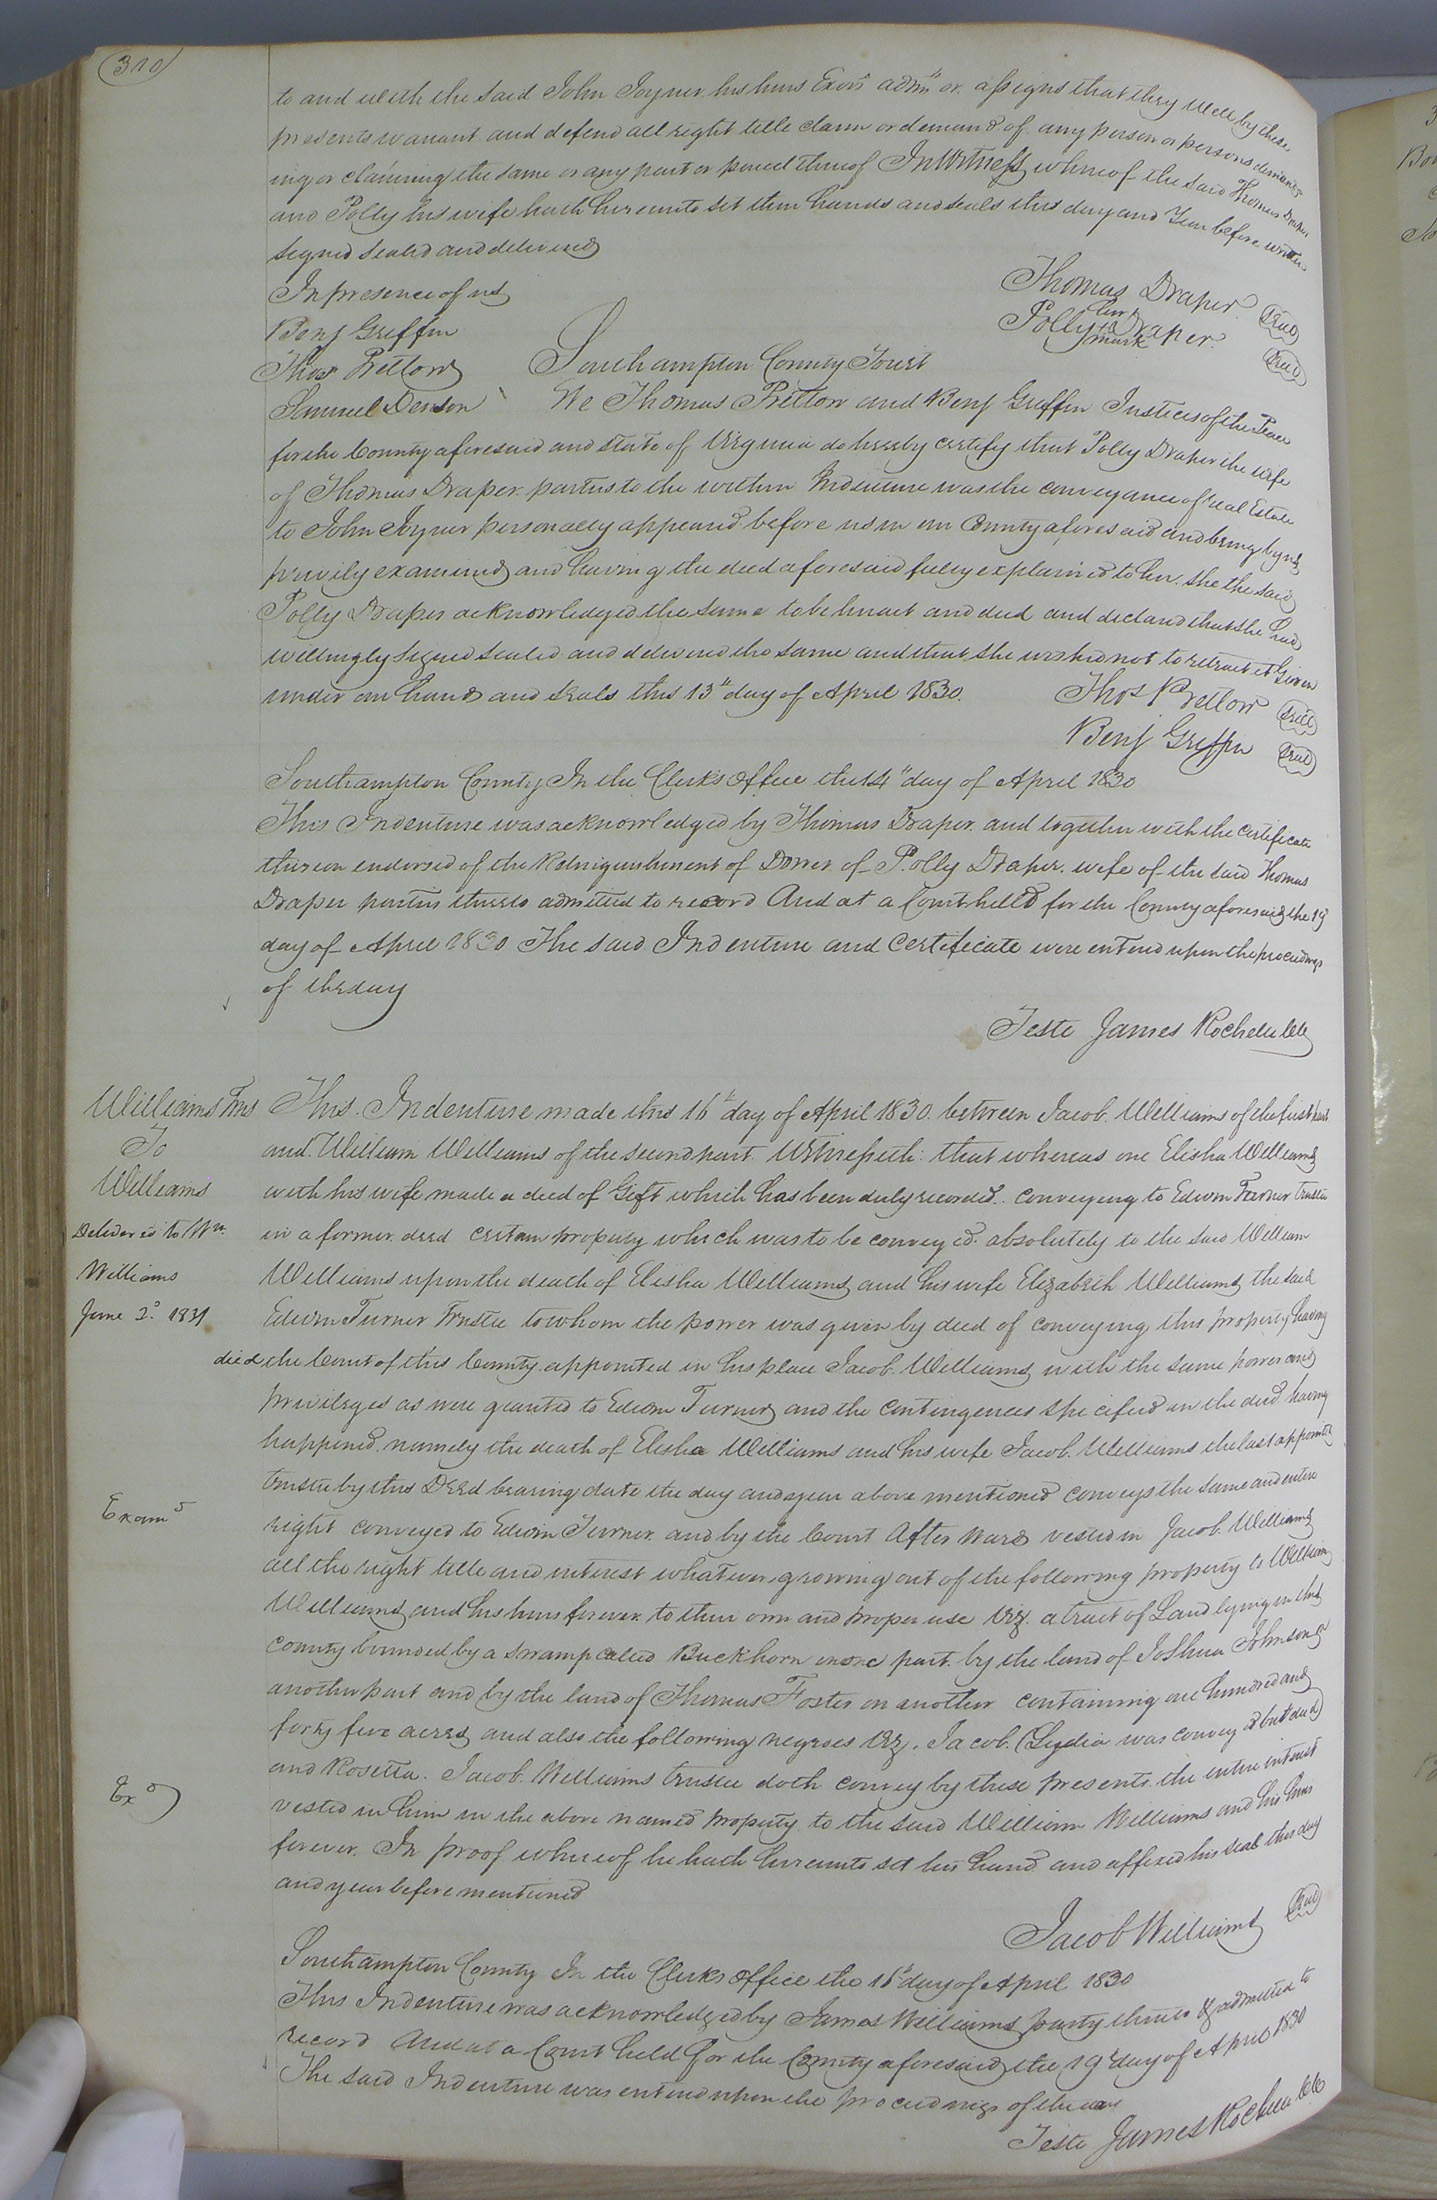 310
to and with the said John Joyner his heirs Exors admrs or assigns that they will by these
presents warrant and defend all right title claim or demand of any person or persons demand
ing or claiming the same or any part or parcel thereof In Witness whereof the said Thomas Draper
and Polly his wife hath hereunto set their hands and seals this day and Year before written
Signed sealed and delivered
In presence of us
Thomas Draper Seal
Benj Griffin
her
Polly Draper Seal
mark
Thos Pretlow
Samuel Denson
Southampton County Court
We Thomas Pretlow and Benj Griffin Justices of the Peace
for the County aforesaid and State of Virginia do hereby certify that Polly Draper the wife
of Thomas Draper parties to the within Indenture was the conveyance of real Estate
to John Joyner personally appeared before us in our County aforesaid and being by us
privily examined and having the deed aforesaid fully explained to her. She the said
Polly Draper acknowledged the same to be her act and deed and declared that she had
willingly signed sealed and delivered the same and that she wished not to retract it Given
under our hands and seals this 13th day of April 1830.
Thos Pretlow Seal
Benj Griffin Seal
Southampton County In the Clerks Office the 14th day of April 1830
This Indenture was acknowledged by Thomas Draper and together with the certificate
thereon endorsed of the Relinquishment of Dower of Polly Draper wife of the said Thomas
Draper parties thereto admitted to record And at a Court held for the County aforesaid the 19
day of April 1830 The said Indenture and Certificate were entered upon the proceedings
of the day
Teste James Rochelle Clk
Williams Trus
To
Williams
Delivered to Wm.
Williams
June 2d. 1831
Examd
Exd
This Indenture made this 16th day of April 1830 between Jacob Williams of the first part
and William Williams of the second part Witnesseth that whereas one Elisha Williams
with his wife made a deed of Gift which has been duly recorded conveying to Edwin Turner trustee
in a former deed certain property which was to be conveyed absolutely to the said William
Williams upon the death of Elisha Williams and his wife Elizabeth Williams the said
Edwin Turner Trustee to whom the power was given by deed of conveying this property having
died the Court of this County appointed in his place Jacob Williams with the same power and
privileges as were granted to Edwin Turner and the contingences specified in the deed having
happened namely the death of Elisha Williams and his wife Jacob Williams the last appointed
trustee by this Deed bearing date the day and year above mentioned conveys the same and entire
right conveyed to Edwin Turner and by the Court Afterwards vested in Jacob Williams
all the right title and interest whatever growing out of the following property to William
Williams and his heirs forever to their own and proper use Viz. a tract of Land lying in this
county bounded by a swamp called Buckhorn in one part by the land of Joshua Johnson on
another part and by the land of Thomas Foster on another containing one hundred and
forty five acres and also the following negroes Viz. Jacob (Lydia was conveyed but dead)
and Rosetta. Jacob Williams trustee doth convey by these presents the entire interest
vested in him in the above named property to the said William Williams and his heirs
forever. In proof whereof he hath hereunto set his hand and affixed his seal this day
and year before mentioned
Jacob Williams Seal
Southampton County In the Clerks Office the 16th day of April 1830
This Indenture was acknowledged by James Williams party thereto & admitted to
record And at a Court held for the County aforesaid the 19th day of April 1830
The said Indenture was entered upon the proceedings of the day
Teste James Rochelle Clk